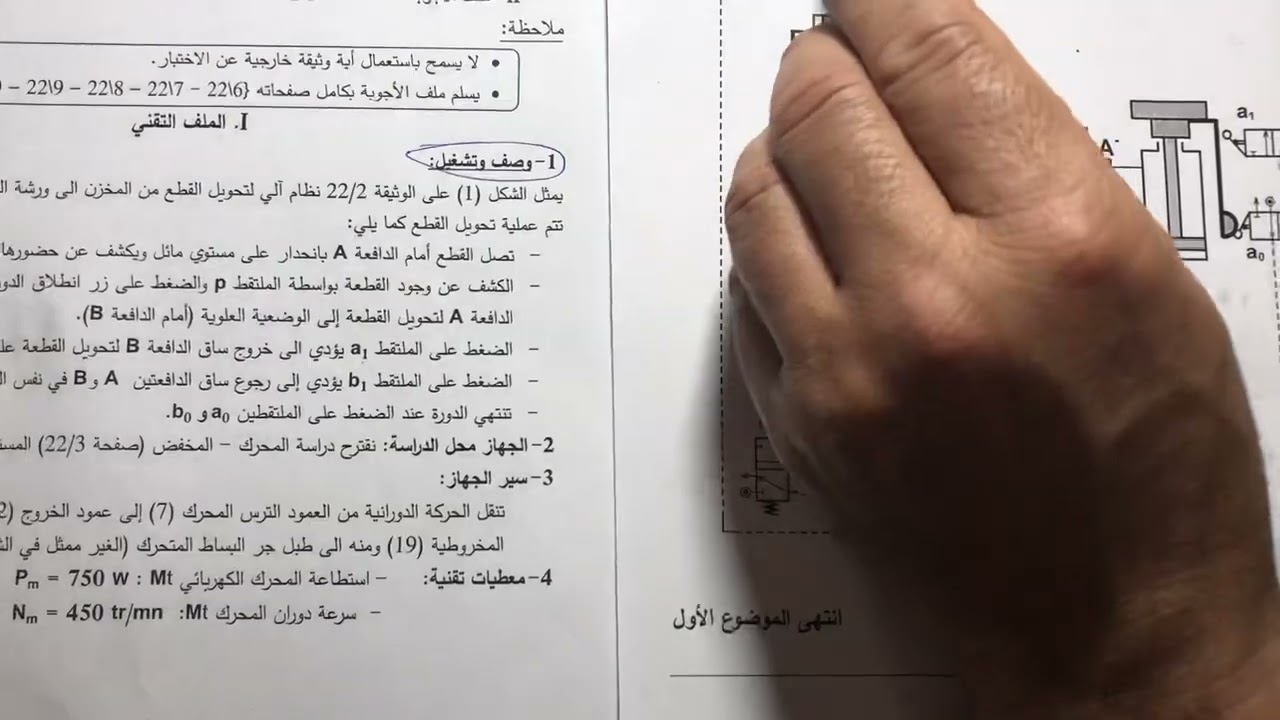 ملاحظة:
• لا يسمح باستعمال أية وثيقة خارجية عن الاختبار.
• يسلم ملف الأجوبة بكامل صفحاته {22\6 – 22\7 – 22\8 – 22\9 –
I. الملف التقني
1- وصف وتشغيل:
يمثل الشكل (1) على الوثيقة 22/2 نظام آلي لتحويل القطع من المخزن الى ورشة
تتم عملية تحويل القطع كما يلي:
– تصل القطع أمام الدافعة A بانحدار على مستوي مائل ويكشف عن حضورها
– الكشف عن وجود القطعة بواسطة الملتقط p والضغط على زر انطلاق
الدافعة A لتحويل القطعة إلى الوضعية العلوية (أمام الدافعة B).
– الضغط على الملتقط a1 يؤدي الى خروج ساق الدافعة B لتحويل القطعة
– الضغط على الملتقط b1 يؤدي إلى رجوع ساق الدافعتين A و B في نفس
– تنتهي الدورة عند الضغط على الملتقطين a0 و b0.
2- الجهاز محل الدراسة: نقترح دراسة المحرك – المخفض (صفحة 22/3)
3- سير الجهاز:
تنقل الحركة الدورانية من العمود الترس المحرك (7) إلى عمود الخروج
المخروطية (19) ومنه الى طبل جر البساط المتحرك (الغير ممثل في
4- معطيات تقنية: – استطاعة المحرك الكهربائي Mt : Pm = 750 w
– سرعة دوران المحرك Mt: Nm = 450 tr/mn
a1
A-
a0
انتهى الموضوع الأول